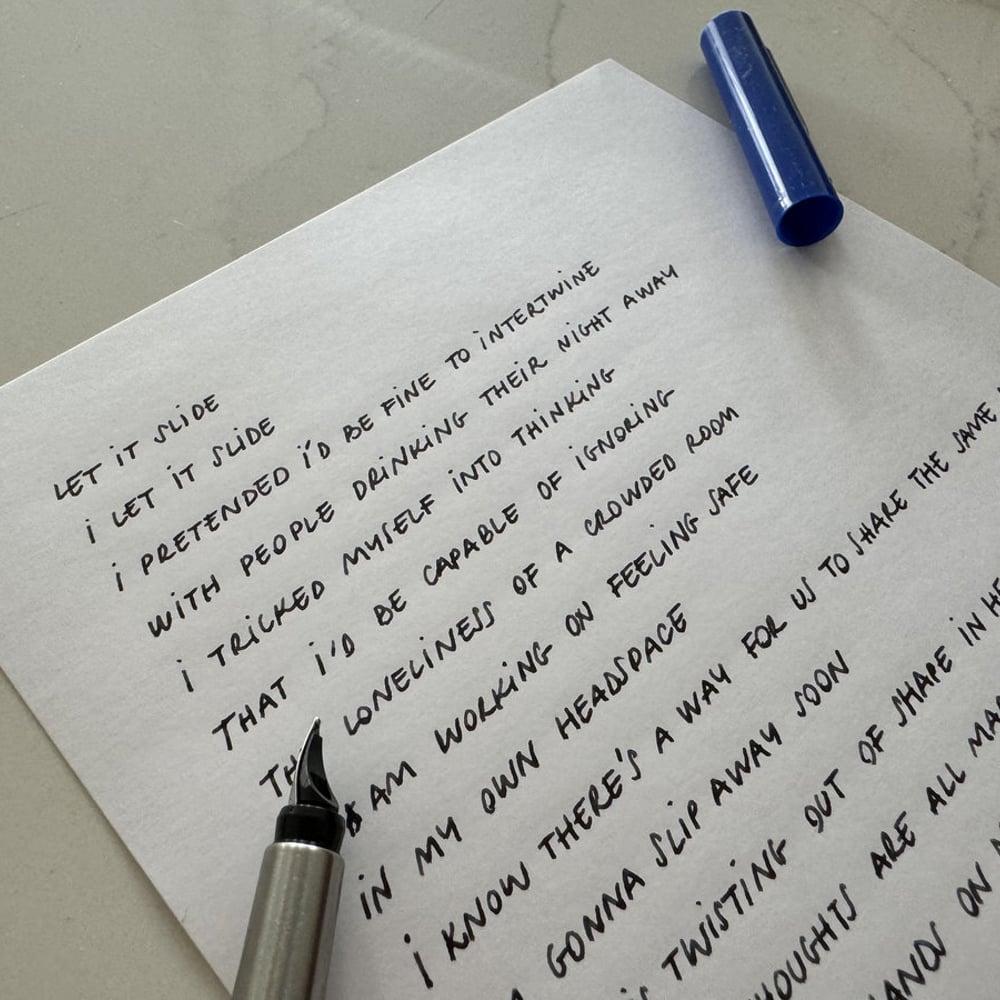 LET IT SLIDE
I LET IT SLIDE
I PRETENDED I'D BE FINE TO INTERTWINE
WITH PEOPLE DRINKING THEIR NIGHT AWAY
I TRICKED MYSELF INTO THINKING
THAT I'D BE CAPABLE OF IGNORING
LONELINESS OF A CROWDED ROOM
AM WORKING ON FEELING SAFE
IN MY OWN HEADSPACE
I KNOW THERE'S A WAY FOR US TO SHARE THE SAME
GONNA SLIP AWAY SOON
TWISTING OUT OF SHAPE IN
ARE ALL
ON